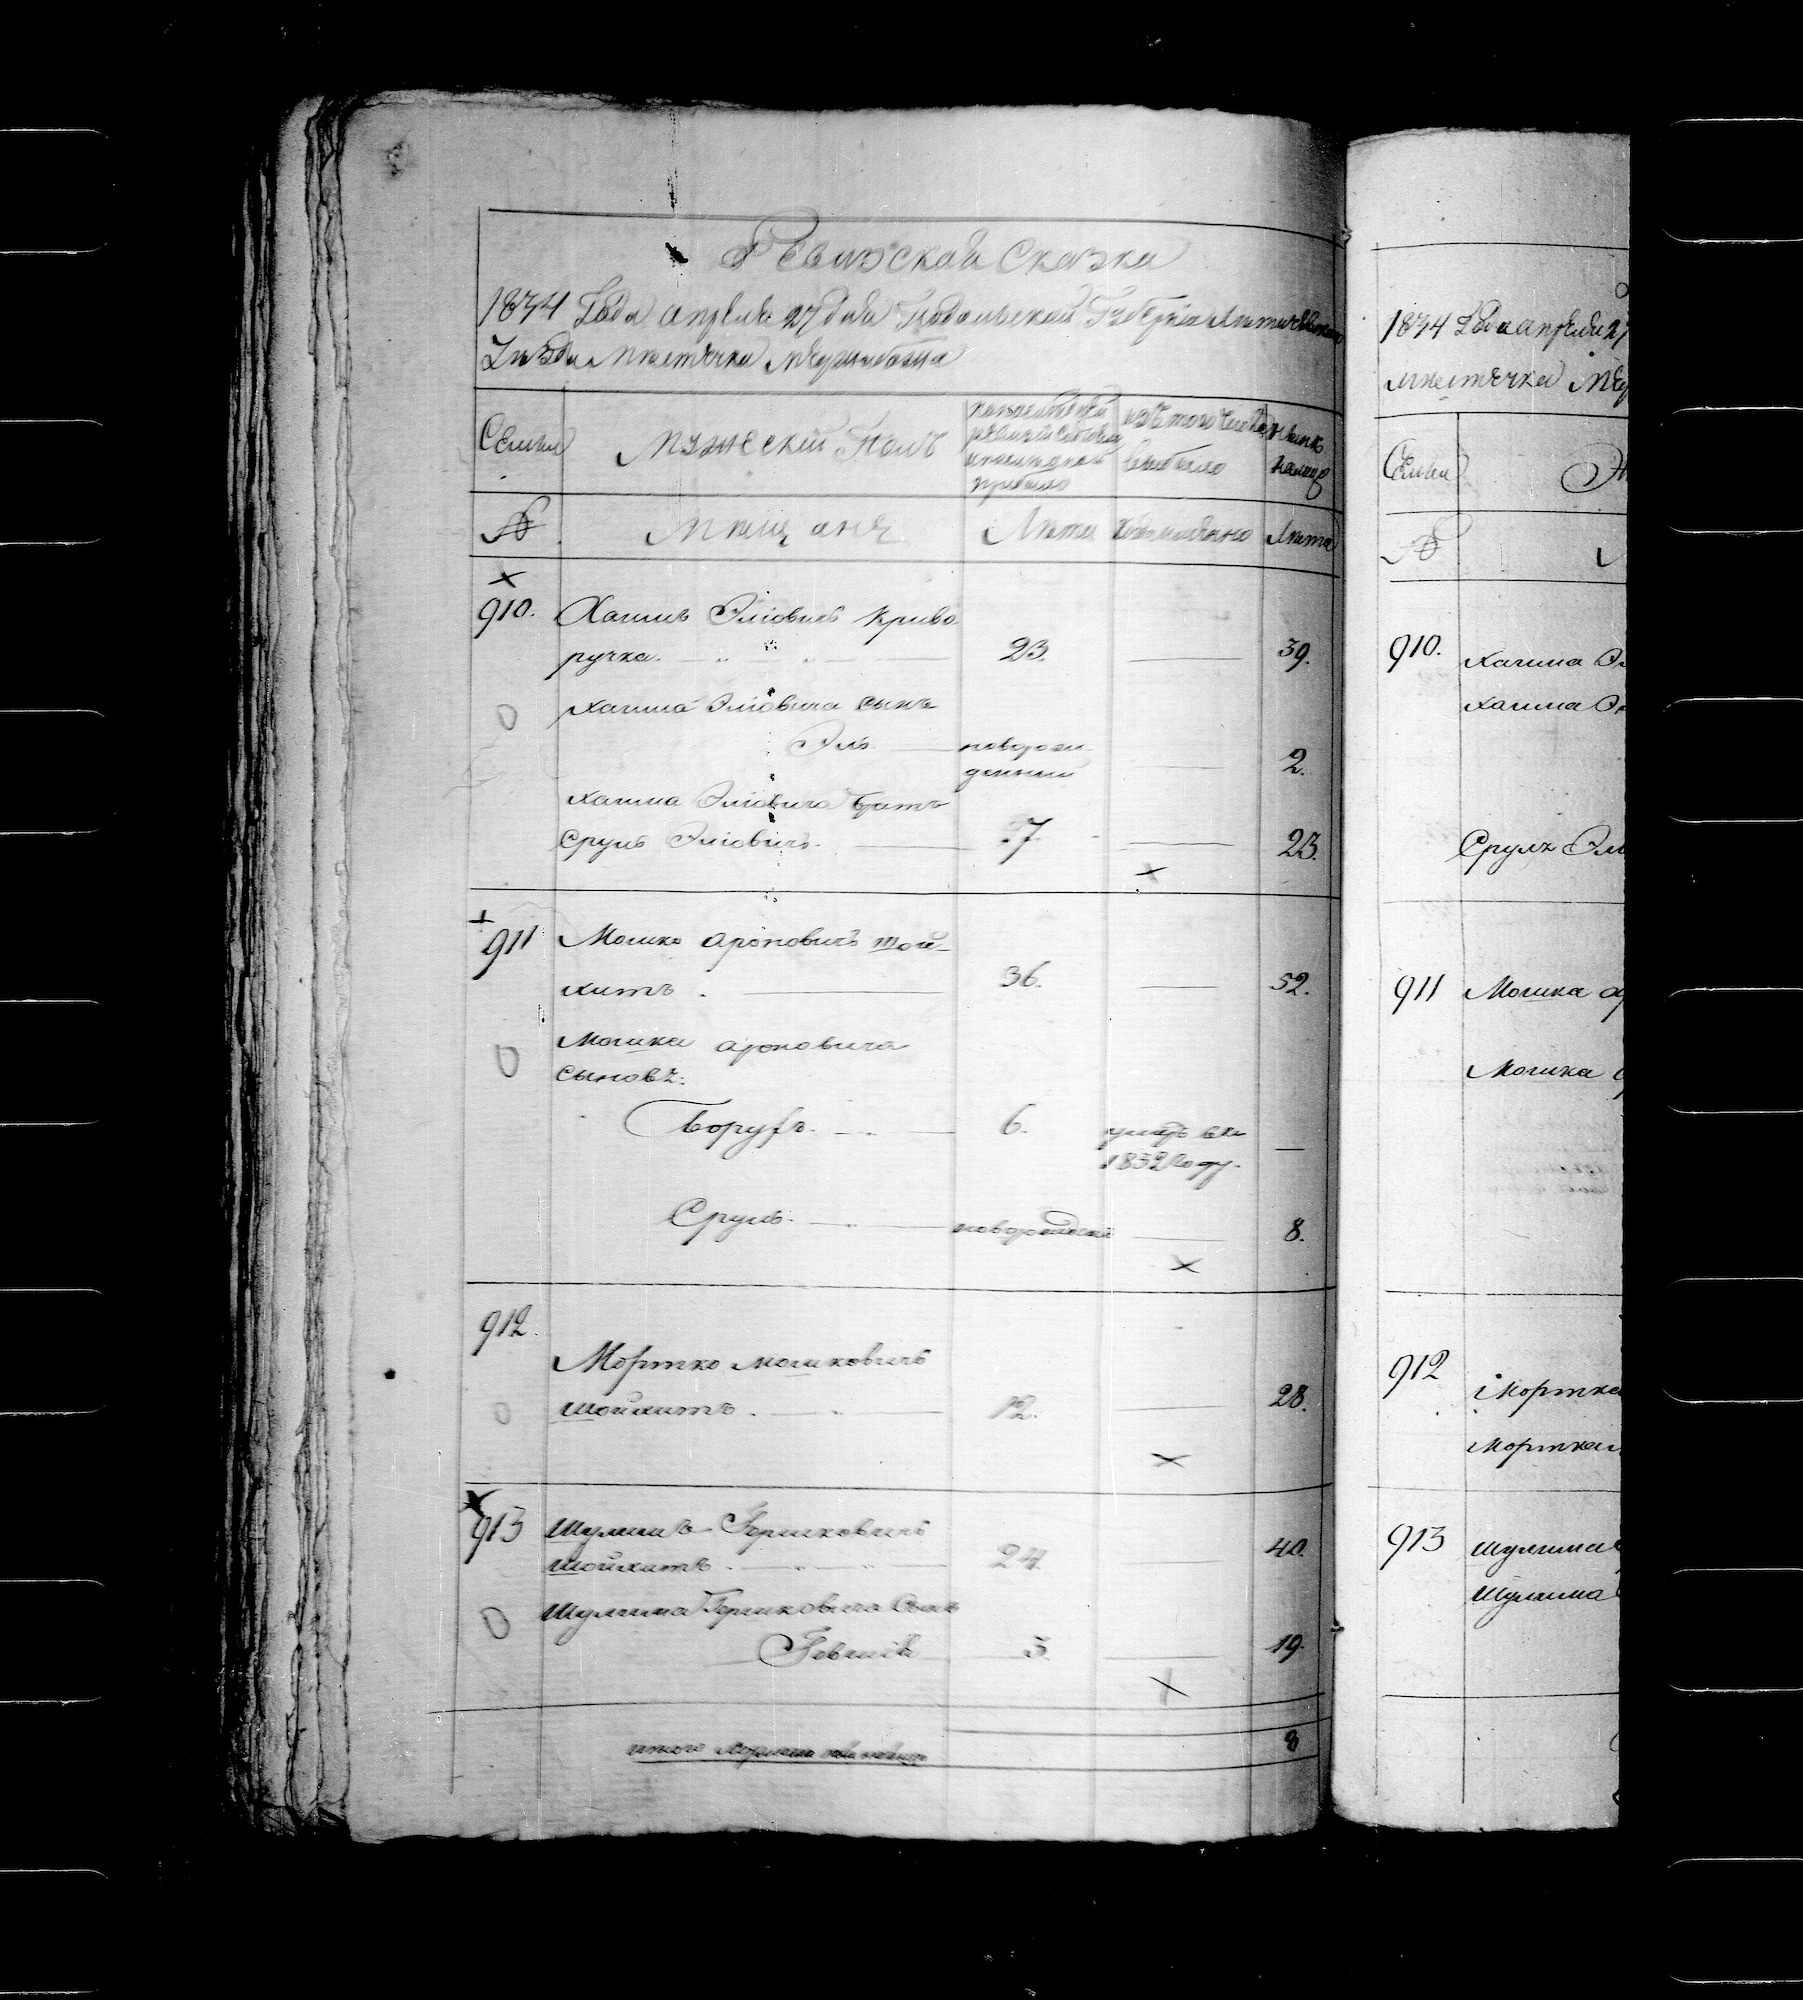 Ревизская Сказка
1834 Года апреля 27 дня Подольской Губернiи Летичевскаго
Уезда Местечка Меджибожа
Семьи
Мужеский Полъ
изъ того числа
выбыло
ныне
на лицо
№
Мещане
Лета
Лета
910.
Хаимъ Элiовичъ Криво
ручка.
23.
39.
Хаима Элiовича сынъ
Элъ
новорож
денный
2.
Хаима Элiовича братъ
Сруль Элiовичъ.
7.
23.
911
Мошко Ароновичъ Шой
хитъ.
36.
52.
Мошка Ароновича
сыновъя:
Борухъ.
6.
умеръ въ
1832 Году.
Сруль.
новорожденный
8.
912.
Мортко Мошковичъ
Шойхитъ.
12.
28.
913
Шулимъ Гершковичъ
Шойхитъ.
24.
40.
Шулима Гершковича Сынъ
3
19.
итого мужеска пола на лицо
8
1834 Года апреля 27
местечка Мед
Семьи
№
910.
Хаима Эл
Хаима Эл
Сруля Эл
911
Мошка Ар
Мошка
912
Мортка
Мортка
913
Шулима
Шулима